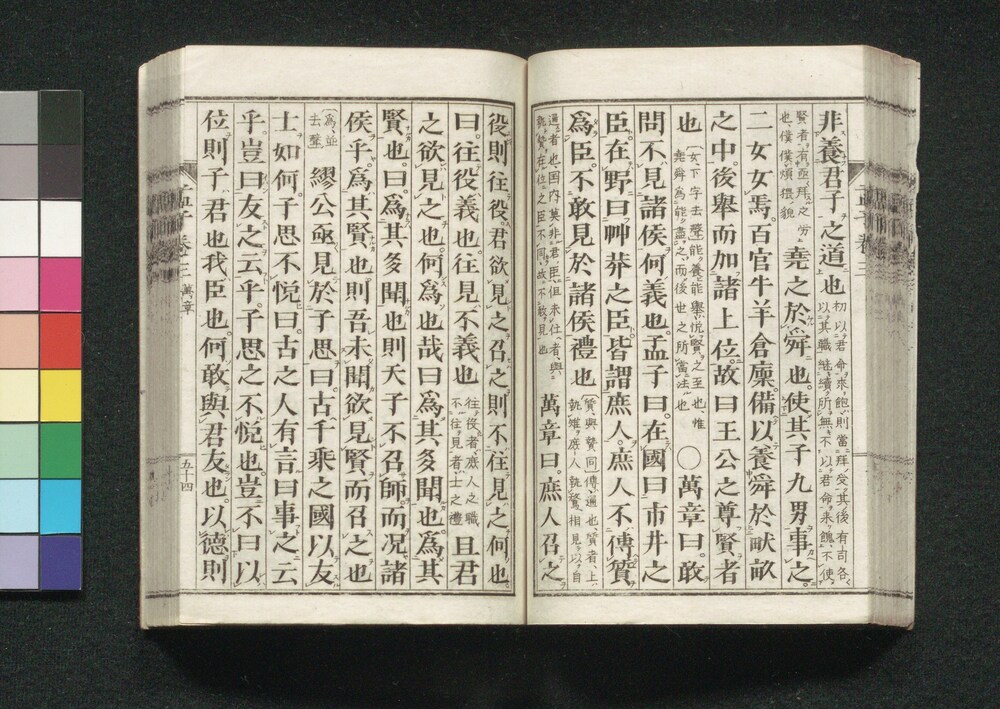 非養君子之道也 初以君命來餽則當拜受其後有司各以其職繼續所無不以君命來餽不使
賢者有亟拜之勞也僕僕煩猥貌 堯之於舜也使其子九男事之
二女女焉百官牛羊倉廩備以養舜於畎畝
之中後舉而加諸上位故曰王公之尊賢者
也 女下字去聲能養能舉悅賢之至也惟堯舜爲能盡之而後世之所當法也 ○萬章曰敢
問不見諸侯何義也孟子曰在國曰市井之
臣在野曰艸莽之臣皆謂庶人庶人不傳質
爲臣不敢見於諸侯禮也 質與贄同傳通也贄者士執雉庶人執鶩相見以自
通者也國內莫非君臣但未仕者與執贄在位之臣不同故不敢見也 萬章曰庶人召之
役則往役君欲見之召之則不往見之何也
曰往役義也往見不義也 往役者庶人之職不往見者士之禮 且君
之欲見之也何爲也哉曰爲其多聞也爲其
賢也曰爲其多聞也則天子不召師而況諸
侯乎爲其賢也則吾未聞欲見賢而召之也
爲並去聲 繆公亟見於子思曰古千乘之國以友
士如何子思不悅曰古之人有言曰事之云
乎豈曰友之云乎子思之不悅也豈不曰以
位則子君也我臣也何敢與君友也以德則
孟子 卷三 萬章
五十四